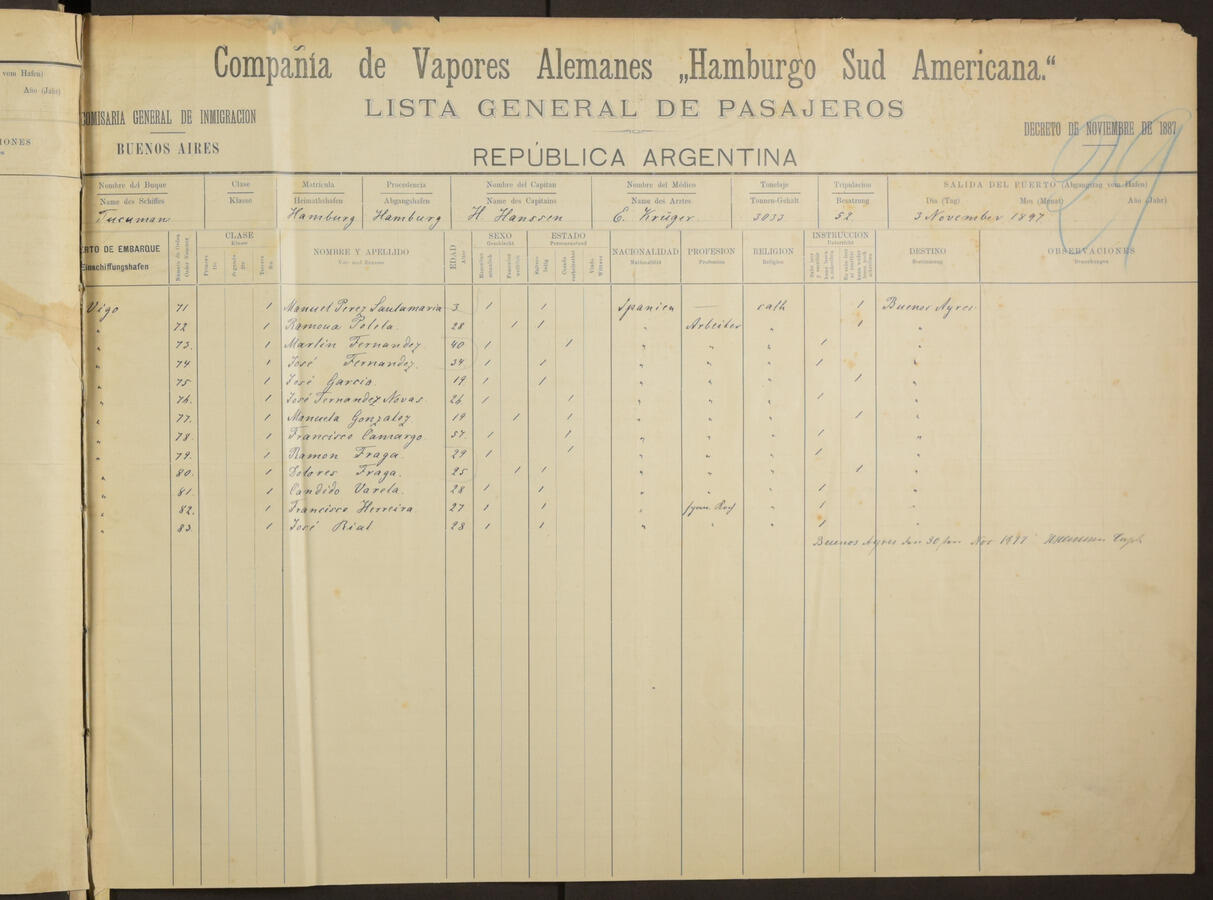 vom Hafen)
Año (Jahr)
IONES
Compañía de Vapores Alemanes „Hamburgo Sud Americana.“
LISTA GENERAL DE PASAJEROS
COMISARIA GENERAL DE INMIGRACION
BUENOS AIRES
DECRETO DE NOVIEMBRE DE 1887
29
REPÚBLICA ARGENTINA
Nombre del Buque Clase Matrícula Procedencia Nombre del Capitan Nombre del Médico Tonelaje Tripulacion SALIDA DEL PUERTO (Abgangstag vom Hafen)
Name des Schiffes Klasse Heimathshafen Abgangshafen Name des Capitains Name des Arztes Tonnen-Gehalt Besatzung Dia (Tag) Mes (Monat) Año (Jahr)
Tucuman Hamburg Hamburg H. Hanssen E. Krüger 3033 52 3 November 1897
ERTO DE EMBARQUE CLASE NOMBRE Y APELLIDO EDAD SEXO ESTADO NACIONALIDAD PROFESION RELIGION INSTRUCCION DESTINO OBSERVACIONES
Einschiffungshafen Klasse Vor- und Zuname Alter Geschlecht Personenstand Nationalität Profession Religion Unterricht Bestimmung Bemerkungen
Vigo 71 1 Manuel Perez Santamaria 3 1 1 Spanien — cath 1 Buenos Ayres
" 72 1 Ramona 28 1 1 " Arbeiter " 1 "
" 73. 1 Martin Fernandez 40 1 1 " " " 1 "
" 74 1 José Fernandez. 34 1 1 " " " 1 "
" 75 1 José Garcia. 19. 1 1 " " " 1 "
" 76. 1 José Fernandez Novas. 26 1 1 " " " 1 "
" 77. 1 Manuela Gonzalez 19 1 1 " " " 1 "
" 78. 1 Francisco Camargo. 57. 1 1 " " " 1 "
" 79. 1 Ramon Fraga. 29 1 1 " " " 1 "
" 80. 1 Dolores Fraga. 25 1 1 " " " 1 "
" 81. 1 Candido Varela. 28 1 1 " " " 1 "
" 82. 1 Francisco Herreira 27 1 1 " " 1 "
" 83. 1 José Rial 28 1 1 " " " 1 "
Buenos Ayres den 30 Nov 1897